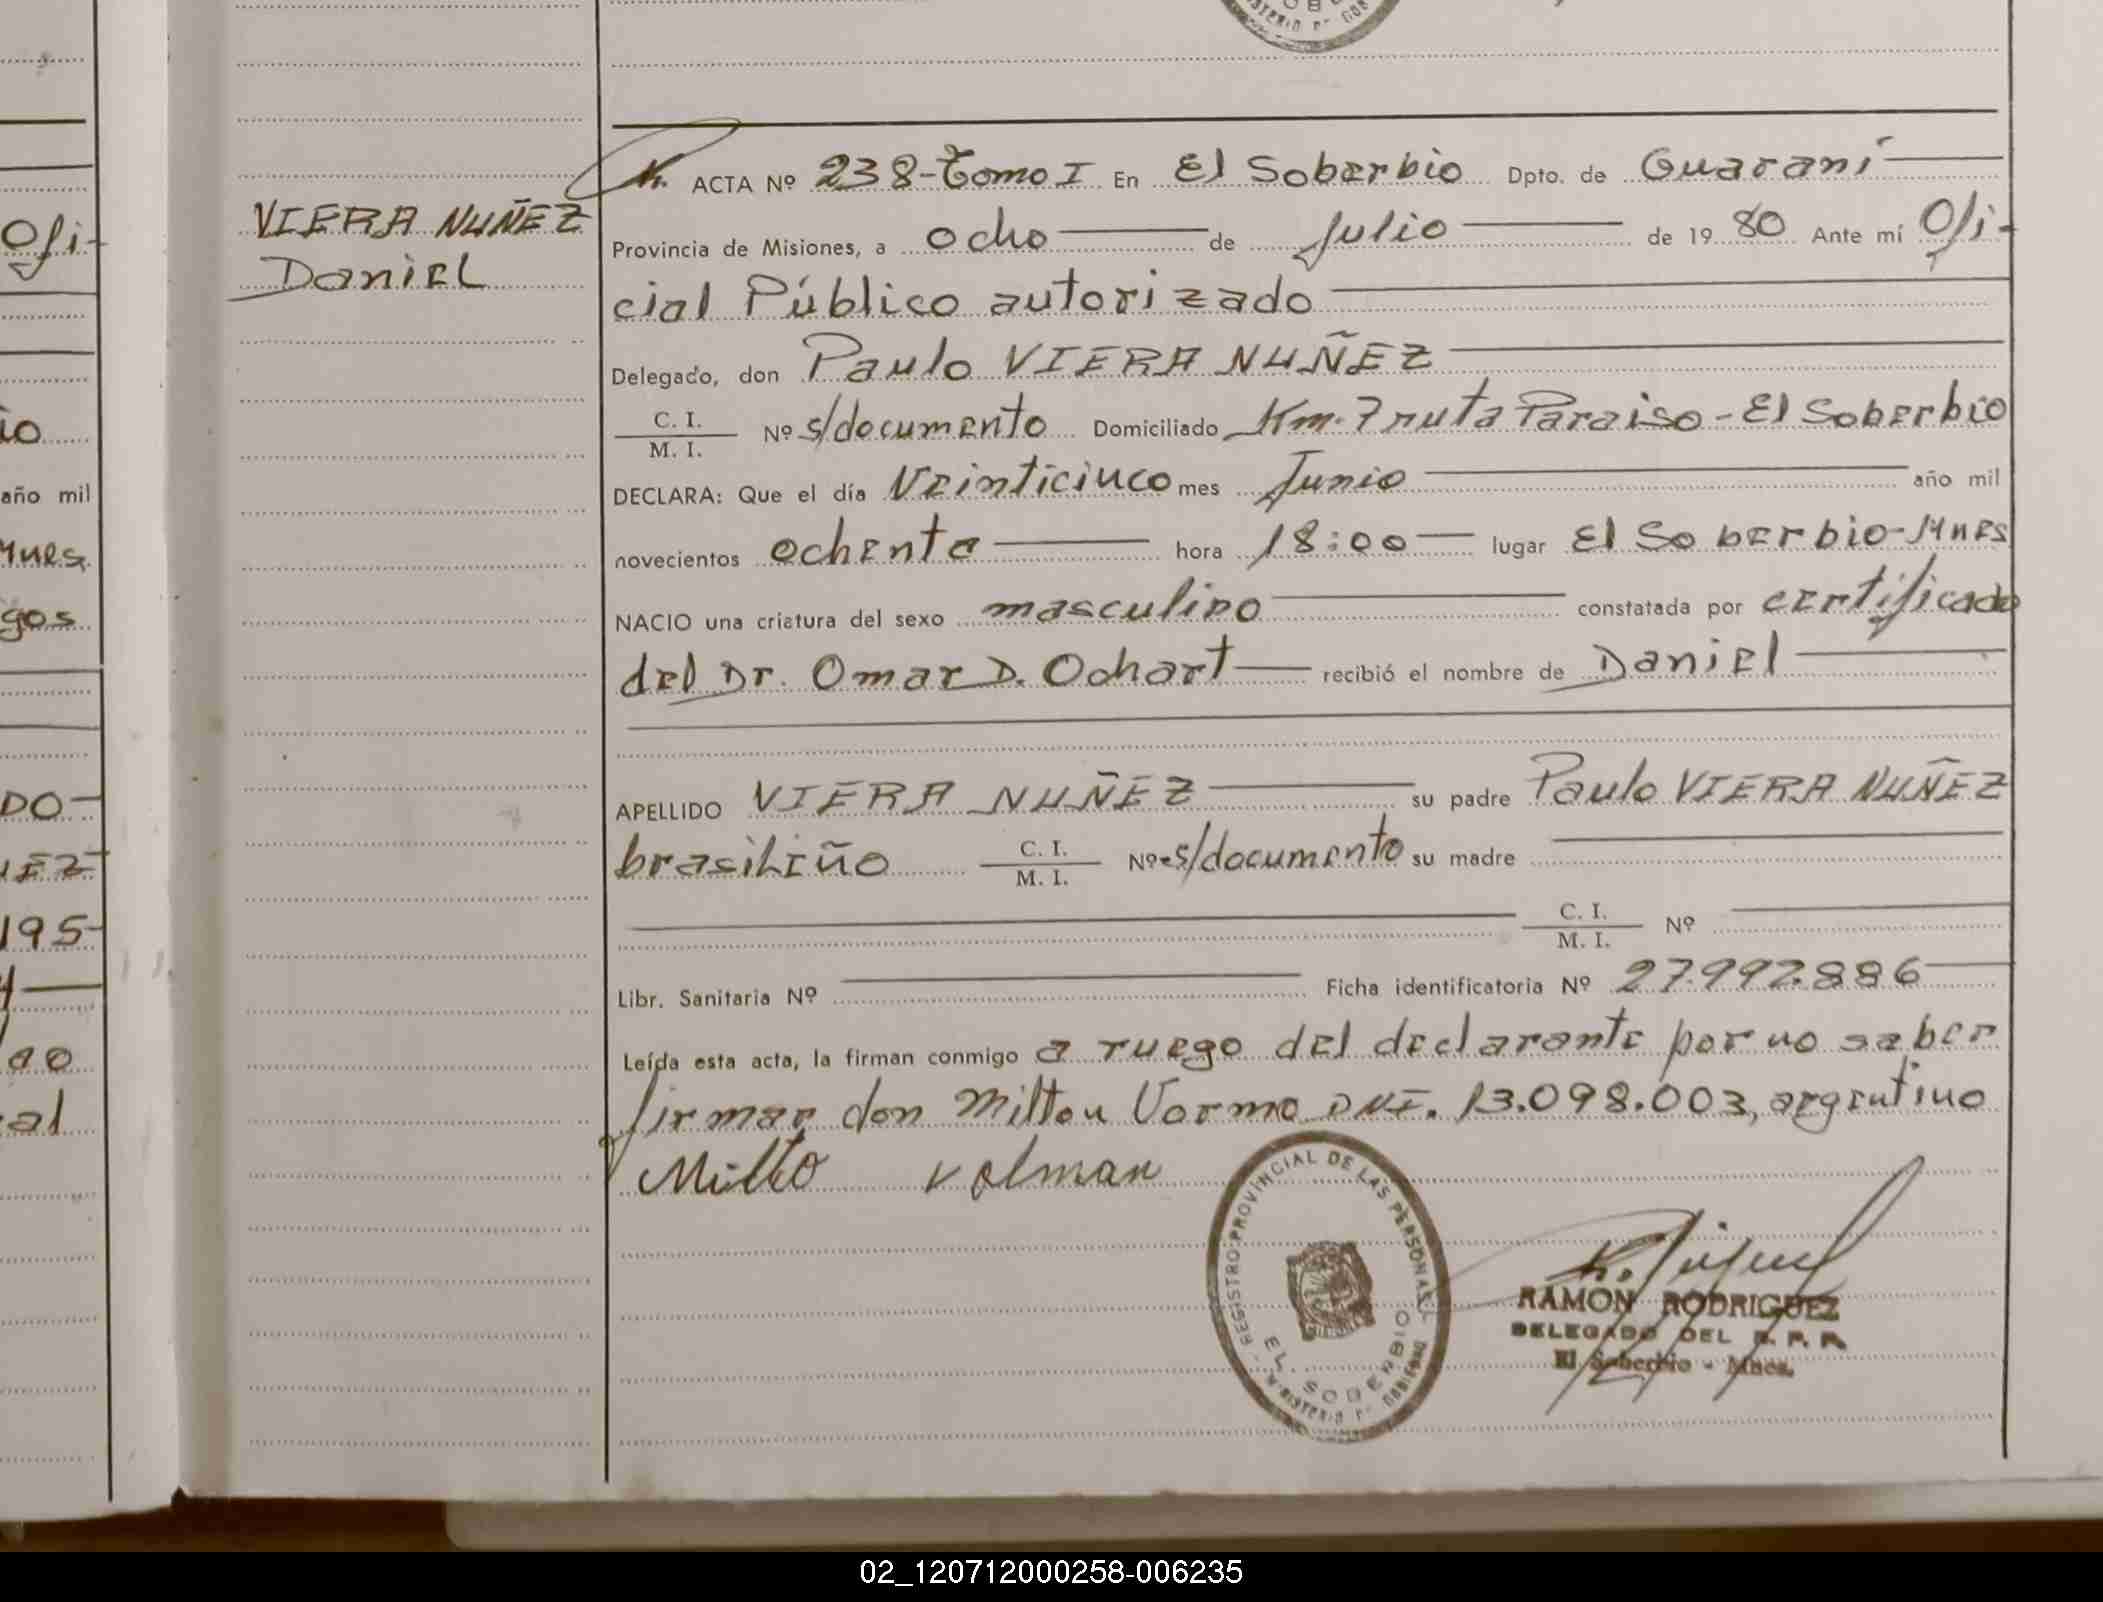 VIERA NUÑEZ
Daniel
ACTA Nº 238-Tomo I En El Soberbio Dpto. de Guaraní
Provincia de Misiones, a ocho de Julio de 1980 Ante mí Ofi-
cial Público autorizado
Delegado, don Paulo VIERA NUÑEZ
C. I.
M. I. Nº s/documento Domiciliado Km. 7 ruta Paraiso - El Soberbio
DECLARA: Que el día Veinticinco mes Junio año mil
novecientos ochenta hora 18:00 lugar El Soberbio-Mnes
NACIO una criatura del sexo masculino constatada por certificado
del Dr. Omar D. Ochart recibió el nombre de Daniel
APELLIDO VIERA NUÑEZ su padre Paulo VIERA NUÑEZ
brasileño C. I. / M. I. Nº s/documento su madre
C. I. / M. I. Nº
Libr. Sanitaria Nº Ficha identificatoria Nº 27.992.886
Leída esta acta, la firman conmigo a ruego del declarante por no saber
firmar don Milton Vorma DNI. 13.098.003, argentino
Milto volman
REGISTRO PROVINCIAL DE LAS PERSONAS
EL SOBERBIO
MINISTERIO DE GOBIERNO
RAMON RODRIGUEZ
DELEGADO DEL R. P. P.
El Soberbio - Mnes.
Ofi-
io
año mil
Mnes.
gos
DO
UEZ
195-
ao
al
02_120712000258-006235